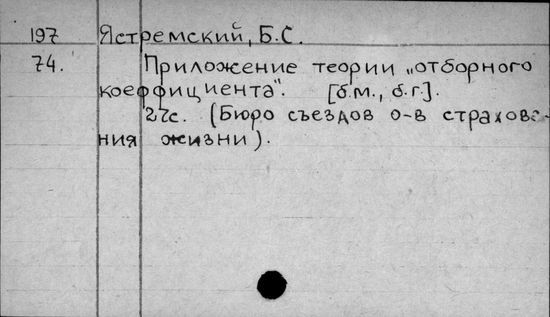 197 Ястремский, Б.С.
74. Приложение теории „отборного
коеффициента". [б.м., б.г.].
27с. (Бюро съездов о-в страхова-
ния жизни).